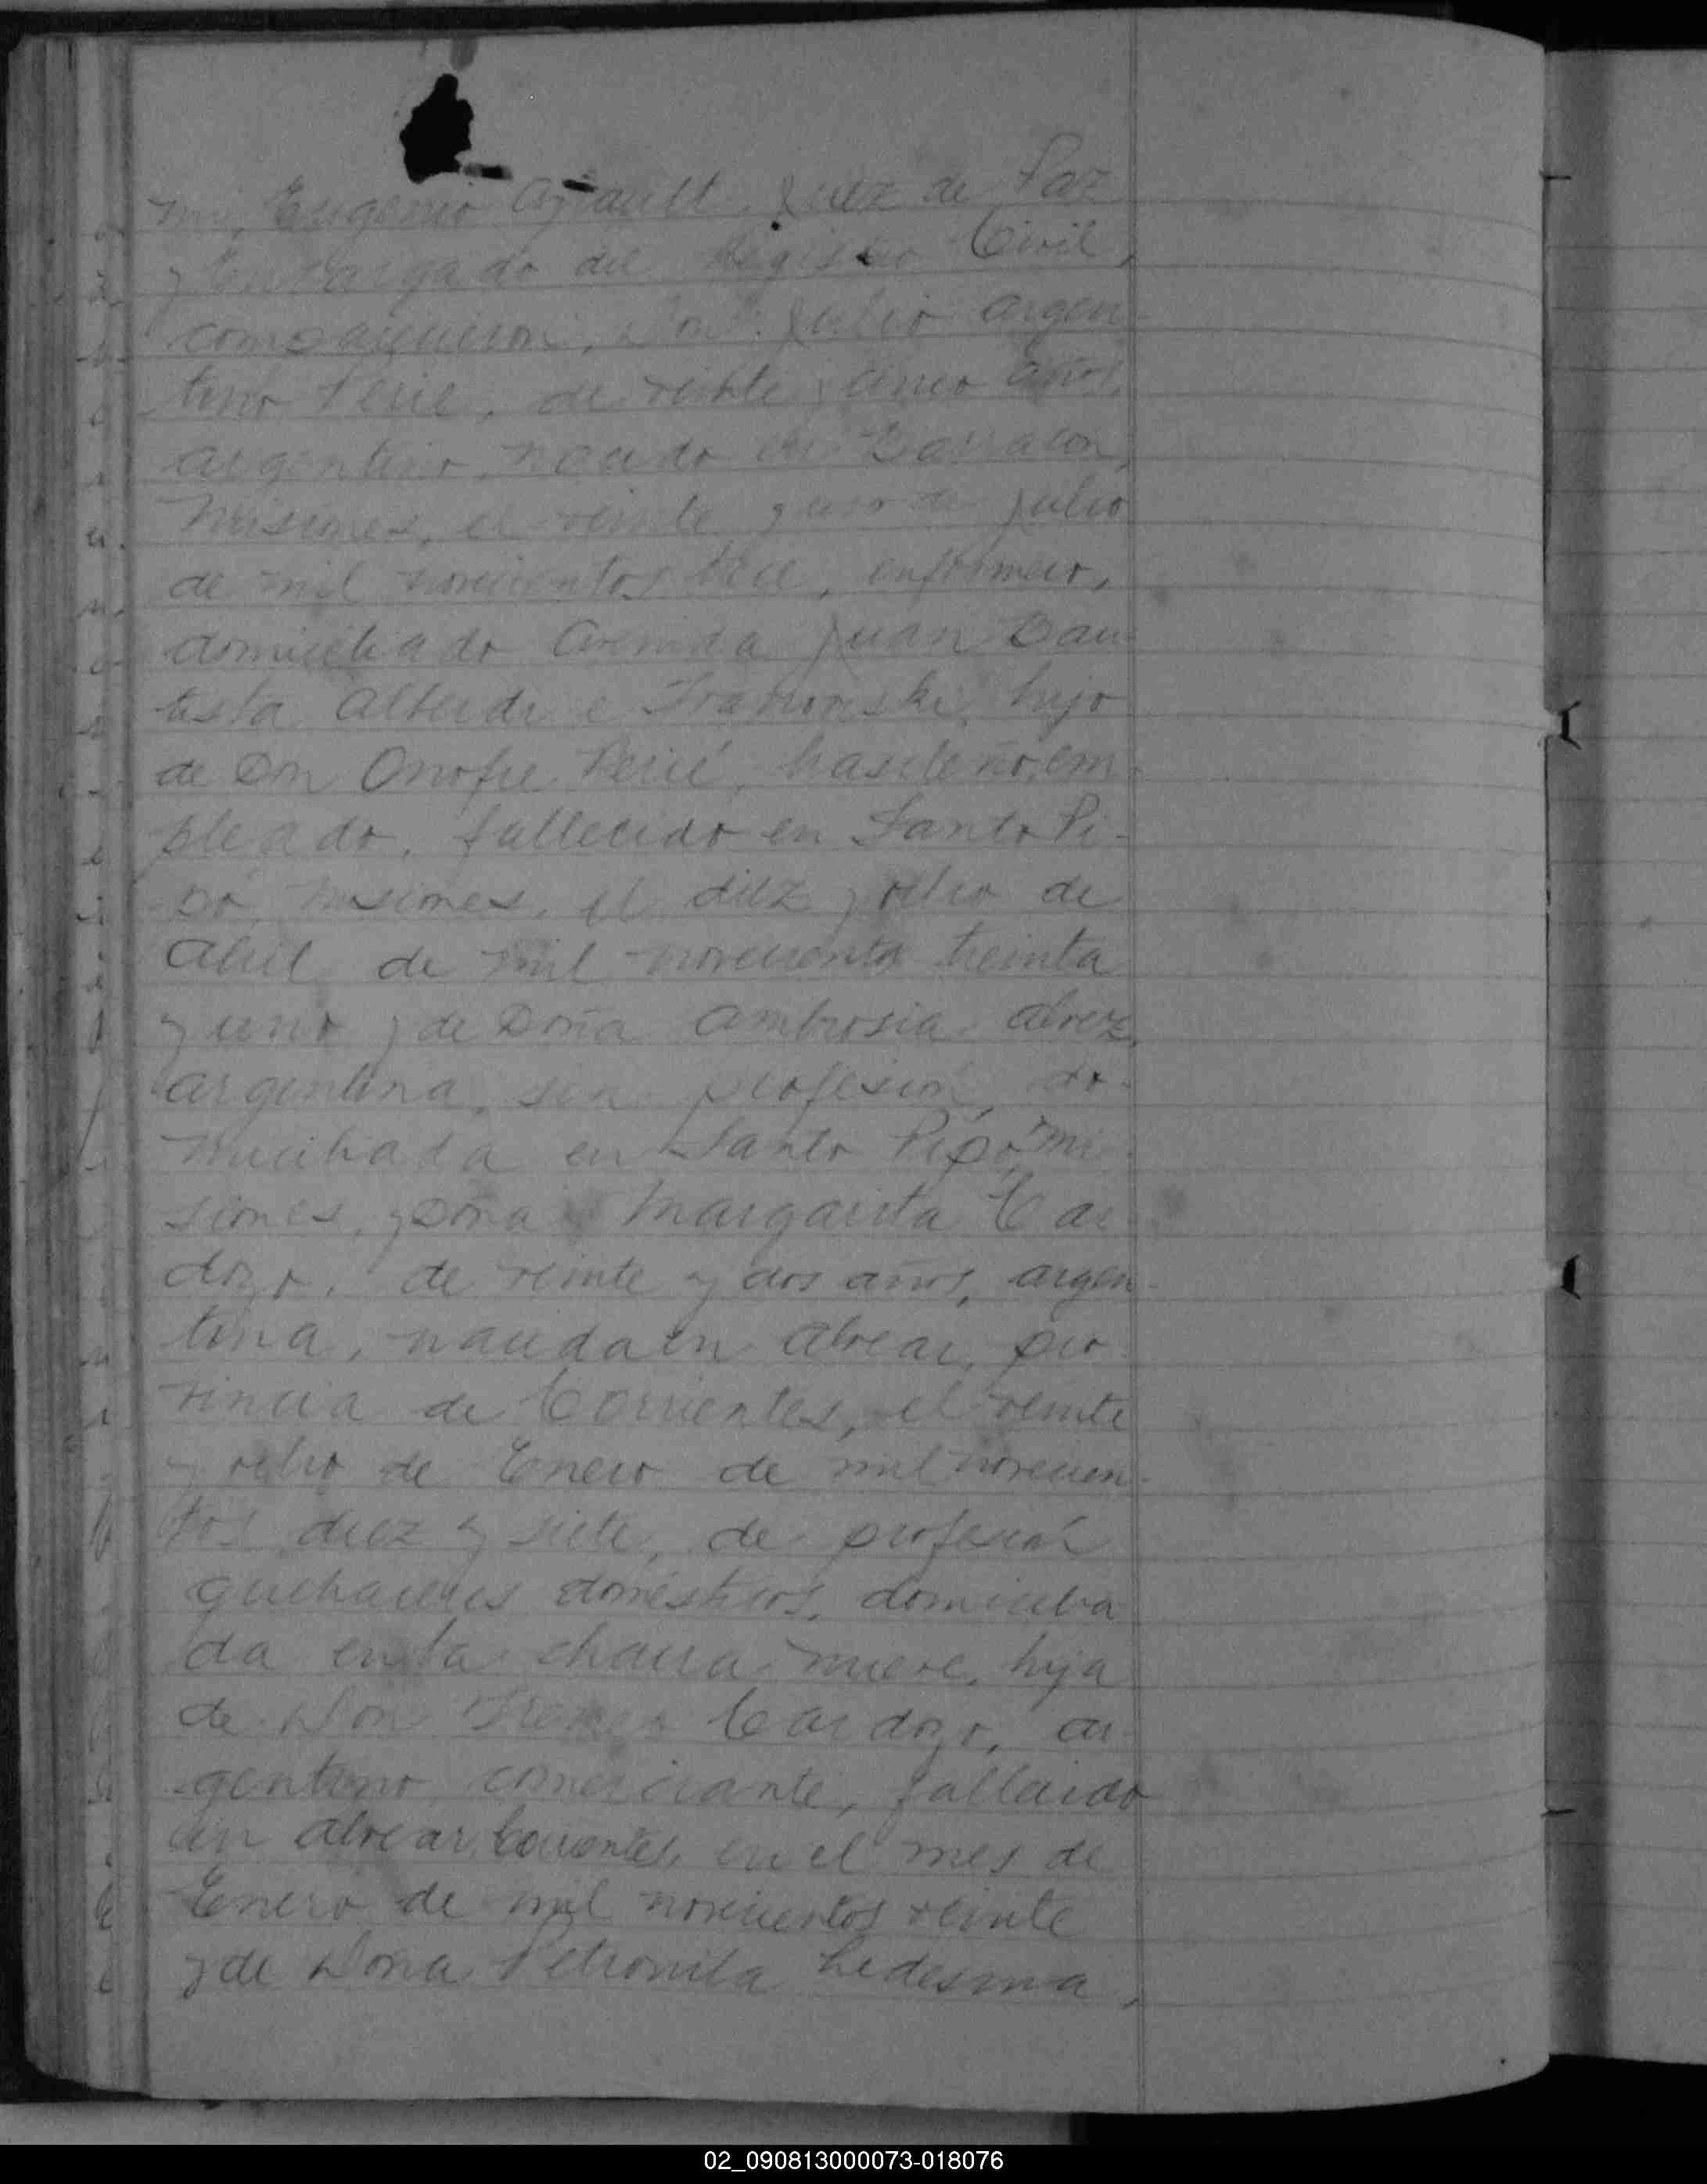 mi, Eugenio Ayrault, Juez de Paz
y Encargado del Registro Civil,
comparecieron, Don Julio Argen-
tino Perié, de veinte y cinco años,
argentino, nacido en Barracón,
Misiones, el veinte y uno de Julio
de mil novecientos trece, enfermero,
domiciliado Avenida Juan Bau-
tista Alberdi e hijo
de Don Onofre Perié, brasileño, em-
pleado, fallecido en Santo Pi-
pó, Misiones, el diez y ocho de
Abril de mil novecientos treinta
y uno y de Doña Ambrosia Alvez,
argentina, sin profesión, do-
miciliada en Santo Pipó, Mi-
siones, y Doña Margarita Car
dozo, de veinte y dos años, argen-
tina, nacida en Alvear, pro
vincia de Corrientes, el veinte
y ocho de Enero de mil novecien-
tos diez y siete, de profesión
quehaceres domésticos, domicilia
da en la chacra nueve, hija
de Don Cardozo, ar
gentino, comerciante, fallecido
en Alvear, Corrientes, en el mes de
Enero de mil novecientos veinte
y de Doña Petronila Ledesma,
02_090813000073-018076